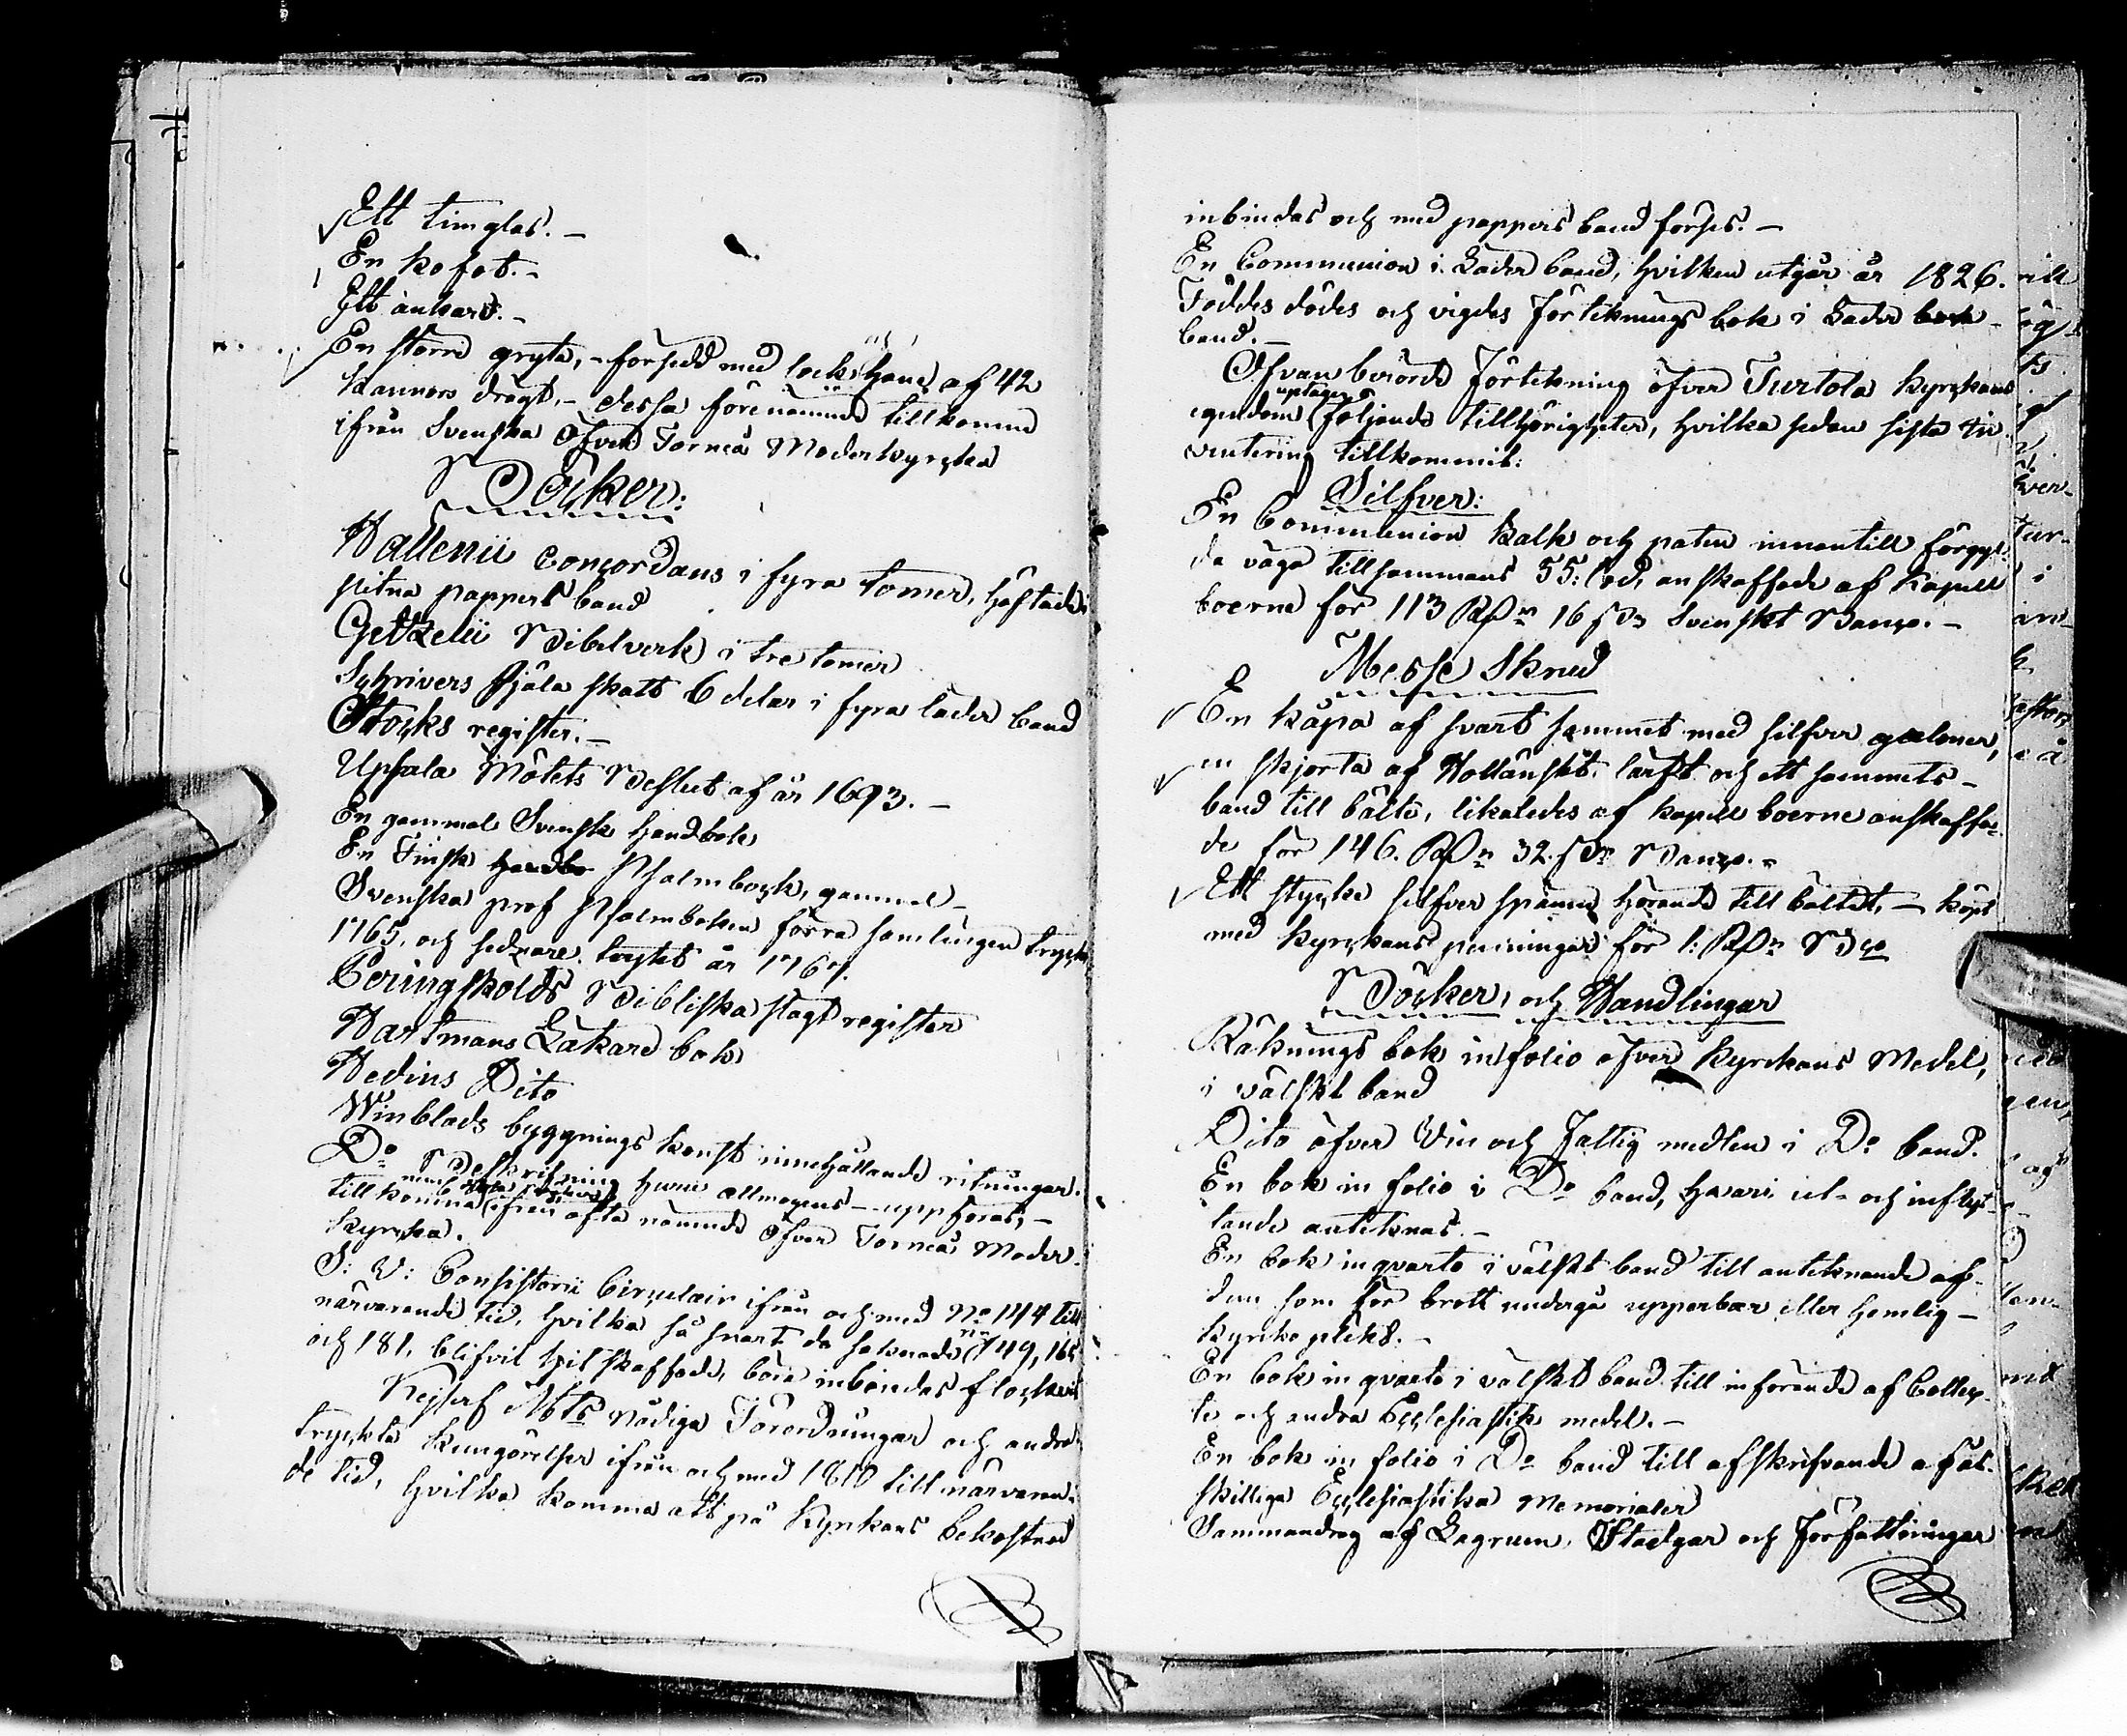 Ett timglas. –
En kofot. –
Ett ankare. –
En större gryta, – försedd med lock och hank af 42
kannors drägt, – dessa förenämnde tillkomne
ifrån Svenska Öfver Torneå Moderkyrcka
Böcker:
Hallenii Concordans i fyra tomer, häftade,
slitna pappers band
Getzelii Bibelverk i tre tomer
Schrivers Själa skatt 6 delar i fyra läder band
Stocks register. –
Upsala Mötets Beslut af år 1693. –
En gammal Svensk handbok
En Finsk handbo Psalmbock, gammal –
Svenska prof Psalmboken förra samlingen tryckt
1765, och sednare tryckt år 1767.
Peringskölds Bibliska slägt register
Hartmans Läkare bok
Hedins Dito
Winblads byggnings konst innehållande ritningar.
Do Beskrifning huru allmogens – uppföras, –
tillkomna ifrån ofta nämnde Öfver Torneå Moder-
kyrcka.
S: V: Consistorii Circulair ifrån och med No 144 till
närvarande tid, hvilka så snart de saknade No 149, 165
och 181, blifvit tilskaffade, böra inbindas flockvis
Kejserl Mts Nådiga Förordningar och andra
tryckta kungörelser ifrån och med 1810 till närvaran-
de tid, hvilka komma att på Kyrkans bekostnad
inbindas och med pappers band förses. –
En Communion i Läder band, hvilken utgår år 1826.
Föddes dödes och vigdes Förteknings bok i Läder bok –
band. –
Ofvanberörde Förtekning öfver Turtola kyrckans
egendom upptager följande tillhörigheter, hvilka sedan sista In-
ventering tillkommit:
Silfver:
En Communion kalk och paten innantill förgyl-
da väga tillsammans 55: lod, anskaffade af Kapell
boerne för 113 RDr 16 sk Svenskt Banco. –
Messe Skrud
En kåpa af svart sammet med silfver galoner,
en skjorta af Hollänskt lärft och ett sammets –
band till bälte, likaledes af kapell boerne anskaffa-
de för 146. RDr 32. sk Banco. –
Ett stycke silfver spänne hörande till bältet, – köpt
med kyrckans penningar för 1: RDr Bco
Böcker, och Handlingar
Räknings bok in folio öfver Kyrckans Medel,
i välskt band
Dito öfver Vin och Fattig medlen i Do band.
En bok in folio i Do band, hvari ut- och inflyt-
tande anteknas. –
En bok in qvarto i välskt band till anteknande af
dem som för brott undergå upperbar eller hemlig –
kyrkoplikt. –
En bok in qvarto i välskt band till införande af Collec-
ter och andra Ecclesiastik medel. –
En bok in folio i Do band till afskrifvande af åt-
skilliga Ecclesiastika Memorialer
Sammandrag af Lagrum, Stadgar och Författningar